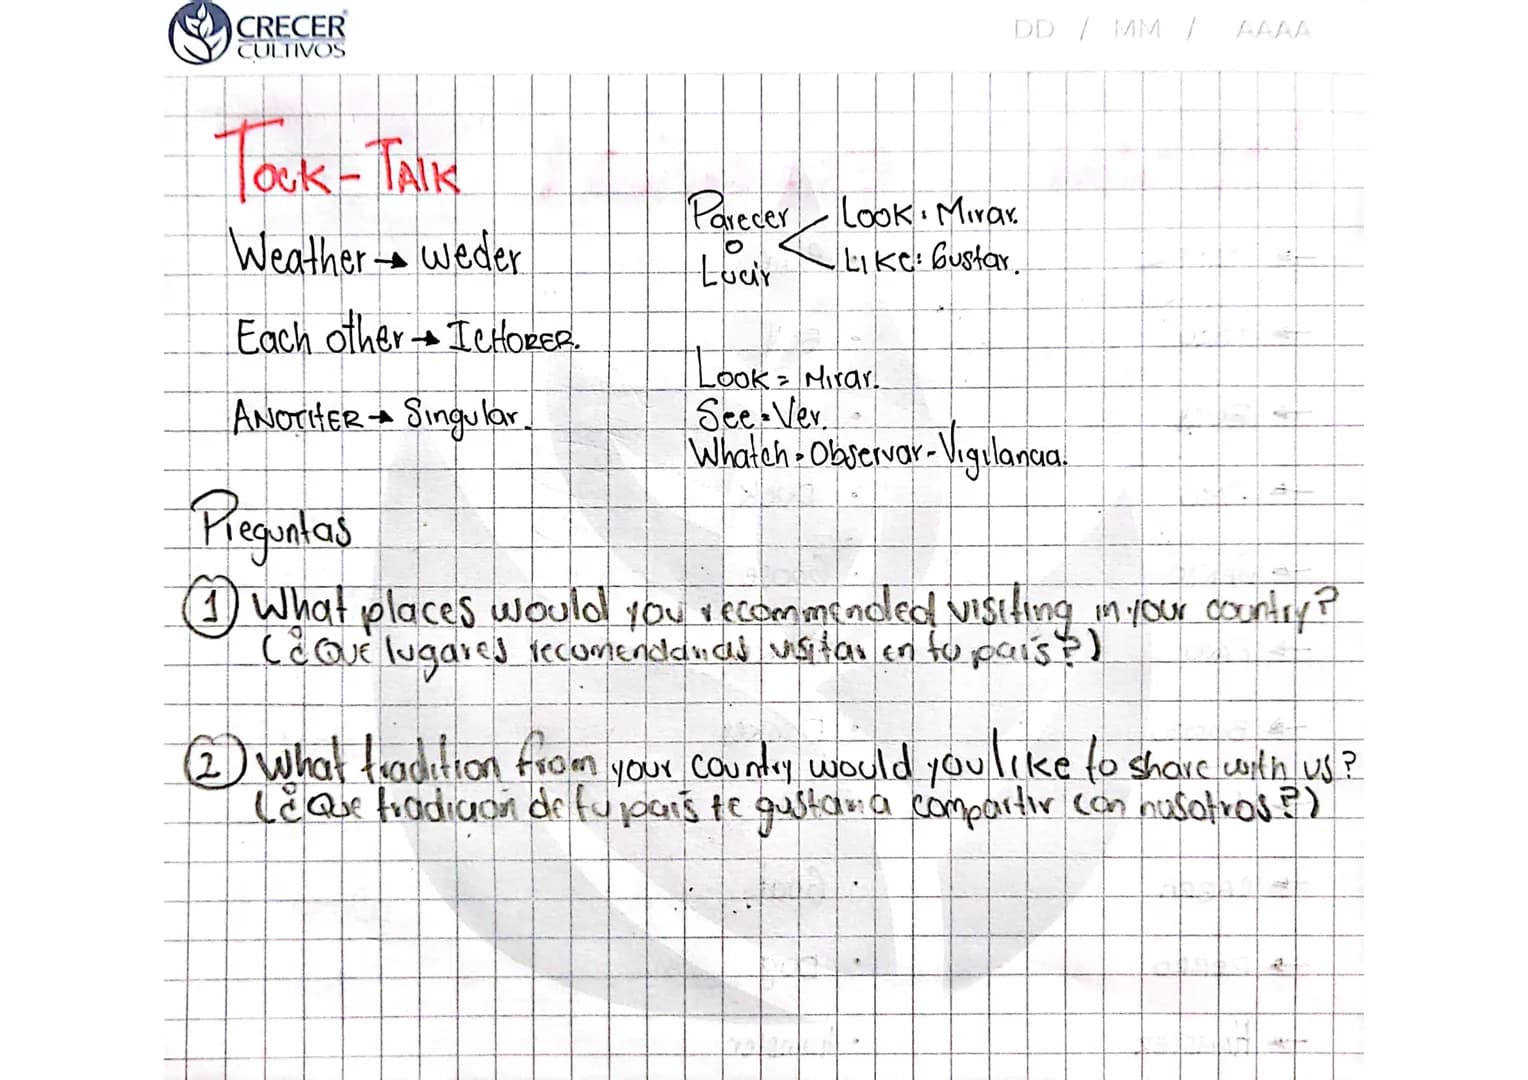 CRECER
CULTIVOS
DD / MM / AAAA
Tock-Talk
Weather → weder
Each other → IcHORER.
ANOTHER → Singular.
Parecer
o
Lucir
Look: Mirar.
Like: Gustar.
Look = Mirar.
See = Ver.
Whatch = Observar-Vigilancia.
Preguntas
1 What places would you recommended visiting in your country?
(¿Que lugares recomendarias visitar en tu país?)
2 What tradition from your country would you like to share with us?
(¿Que tradición de tu país te gustaria compartir con nosotros?)